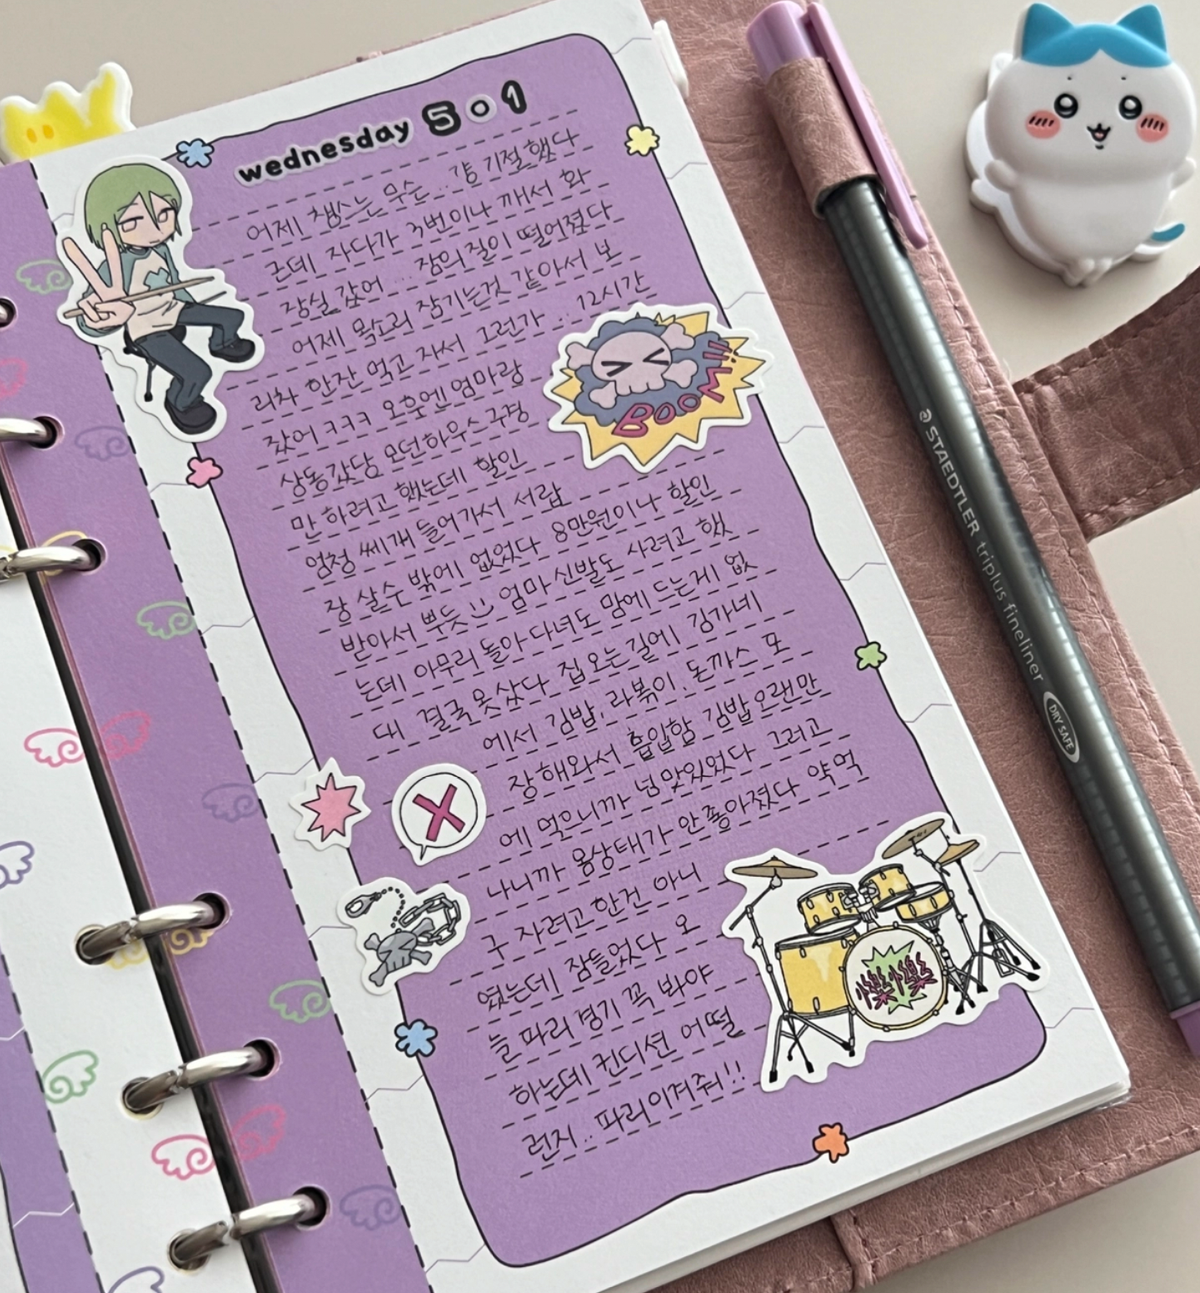 wednesday 501
어제 챔스는 무슨... 걍 기절했다
근데 자다가 3번이나 깨서 화
장실 갔어... 잠의 질이 떨어졌다
어제 목소리 잠기는것 같아서 보
리차 한잔 먹고 자서 그런가... 12시간
잤어 ㅋㅋㅋ 오후엔 엄마랑
상동갔당 모던하우스 구경
만 하려고 했는데 할인
엄청 쎄게 들어가서 서랍
장 살수 밖에 없었다 8만원이나 할인
받아서 뿌듯 엄마 신발도 사려고 했
는데 아무리 돌아다녀도 맘에 드는게 없
대 결국 못샀다 집 오는 길에 김가네
에서 김밥, 라볶이, 돈까스 포
장해와서 흡입함 김밥 오랜만
에 먹으니까 넘 맛있었다 그러고
나니까 몸상태가 안좋아졌다 약 먹
구 자려고 한건 아니
였는데 잠들었다 오
늘 파리 경기 꼭 봐야
하는데 컨디션 어떨
런지.. 파리 이겨줘!!
BOOM!!
X
STAEDTLER triplus fineliner
DRY SAFE